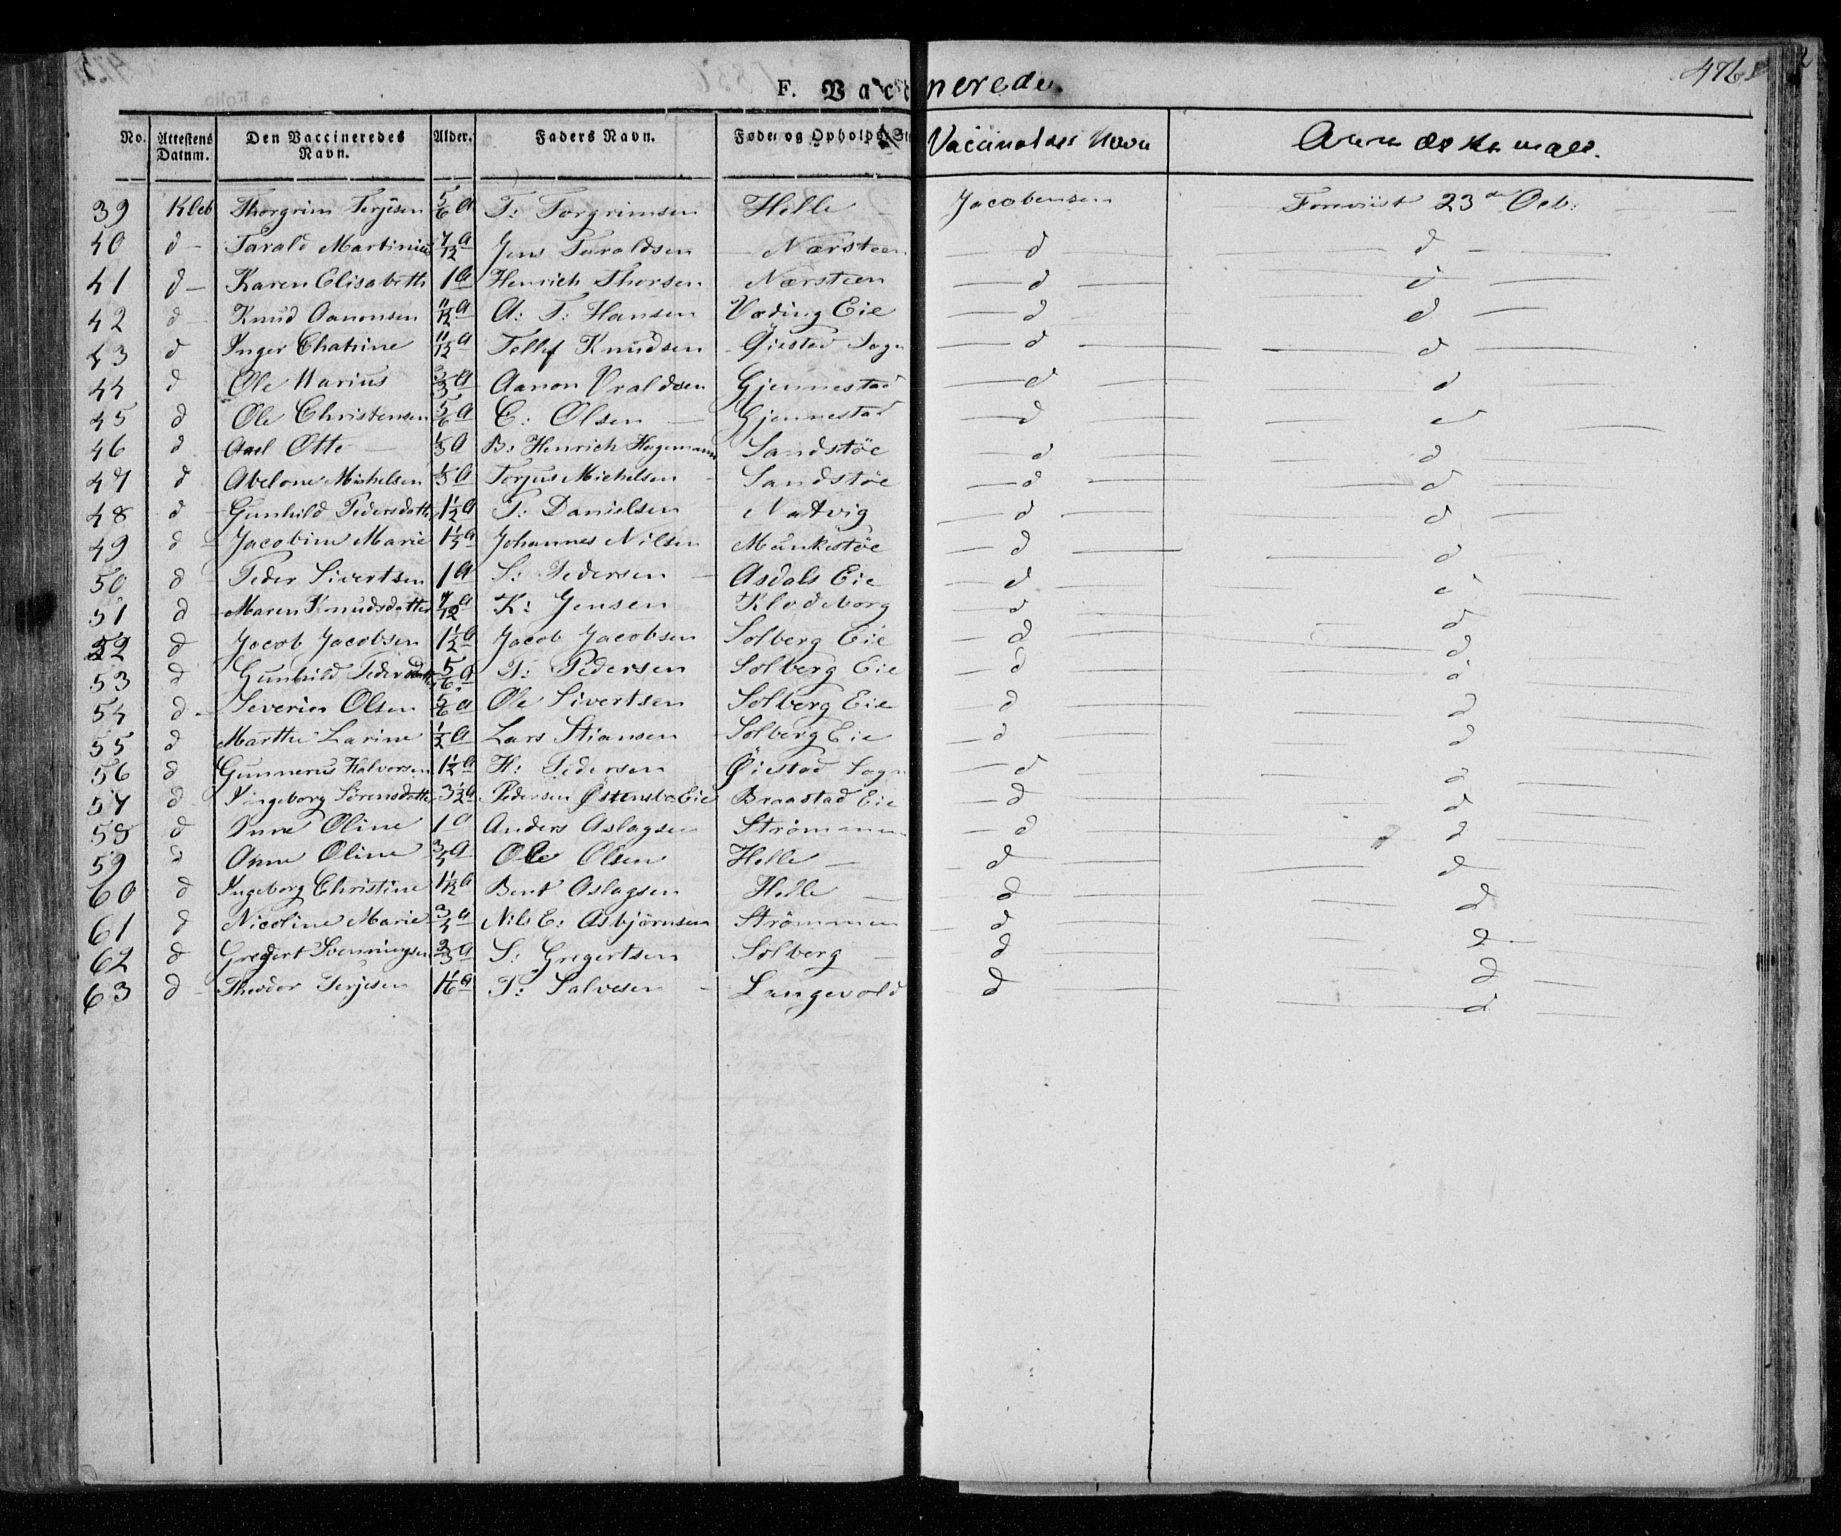 476
F. Vaccinerede.
No. | Attestens Datum. | Den Vaccineredes Navn. | Alder. | Faders Navn. | Føde- og Opholds | Navn | Anmærkninger.
39 | Thorgrim Terjesen | 5/6 a | T: Torgrimsen | Helle | Jacobensen | Foreviist 23de Octb:
40 | d | Tarald Martinius | 7/12 a | Jens Taraldsen | Nærsteen | d | d
41 | d | Karen Elisabeth | 1 a | Henrich Thorsen | Nærsteen | d | d
42 | d | Knud Aanonsen | 11/12 a | A: T: Hansen | Væding Eie | d | d
43 | d | Inger Chatrine | 11/12 a | Tellef Knudsen | Øiestad Sogn | d | d
44 | d | Ole Marius | a | Aanon Vraldsen | Gjennestad | d | d
45 | d | Ole Christensen | 5/6 a | C: Olsen | Gjennestad | d | d
46 | d | Axel Otte | a | B: Henrich Hagemann | Sandstøe | d | d
47 | d | Abelone Michelsen | a | Terjus Michelsen | Sandstøe | d | d
48 | d | Gunhild Pedersdatter | 1 1/2 a | P: Danielsen | Natvig | d | d
49 | d | Jacobine Marie | a | Johannes Nilsen | Munkestøe | d | d
50 | d | Peder Sivertsen | 1 a | S: Pedersen | Asdals Eie | d | d
51 | d | Maren Knudsdatter | 7/12 a | K: Jensen | Klodeborg | d | d
52 | d | Jacob Jacobsen | 1 1/2 a | Jacob Jacobsen | Solberg Eie | d | d
53 | d | Gunhild Pedersdatter | 5/6 a | P: Pedersen | Solberg Eie | d | d
54 | d | Severin Olsen | 5/6 a | Ole Sivertsen | Solberg Eie | d | d
55 | d | Marthe Larine | 1/2 a | Lars Stiansen | Solberg Eie | d | d
56 | d | Gunnerus Halvorsen | 1 1/2 a | H: Pedersen | Øiestad Sogn | d | d
57 | d | Ingeborg Sørensdatter | 3 1/2 a | Pedersen Østensbu Eie | Braastad Eie | d | d
58 | d | Anne Oline | 1 a | Anders Aslagsen | Strømmen | d | d
59 | d | Anne Oline | 3/4 a | Ole Olsen | Helle | d | d
60 | d | Ingeborg Christine | 1 1/2 a | Bent Aslagsen | Helle | d | d
61 | d | Nicoline Marie | 3/4 a | Nils E: Asbjørnsen | Strømmen | d | d
62 | d | Gregert Svenningsen | 2/3 a | S: Gregertsen | Solberg | d | d
63 | d | Theodor Terjesen | 1 1/6 a | T: Salvesen | Langevold | d | d